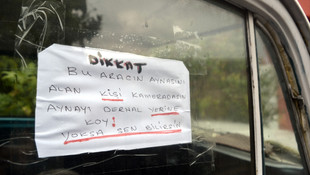 DİKKAT
BU ARACIN AYNASINI
ALAN KİŞİ KAMERADASIN
AYNAYI DERHAL YERİNE
KOY!
YOKSA SEN BİLİRSİN